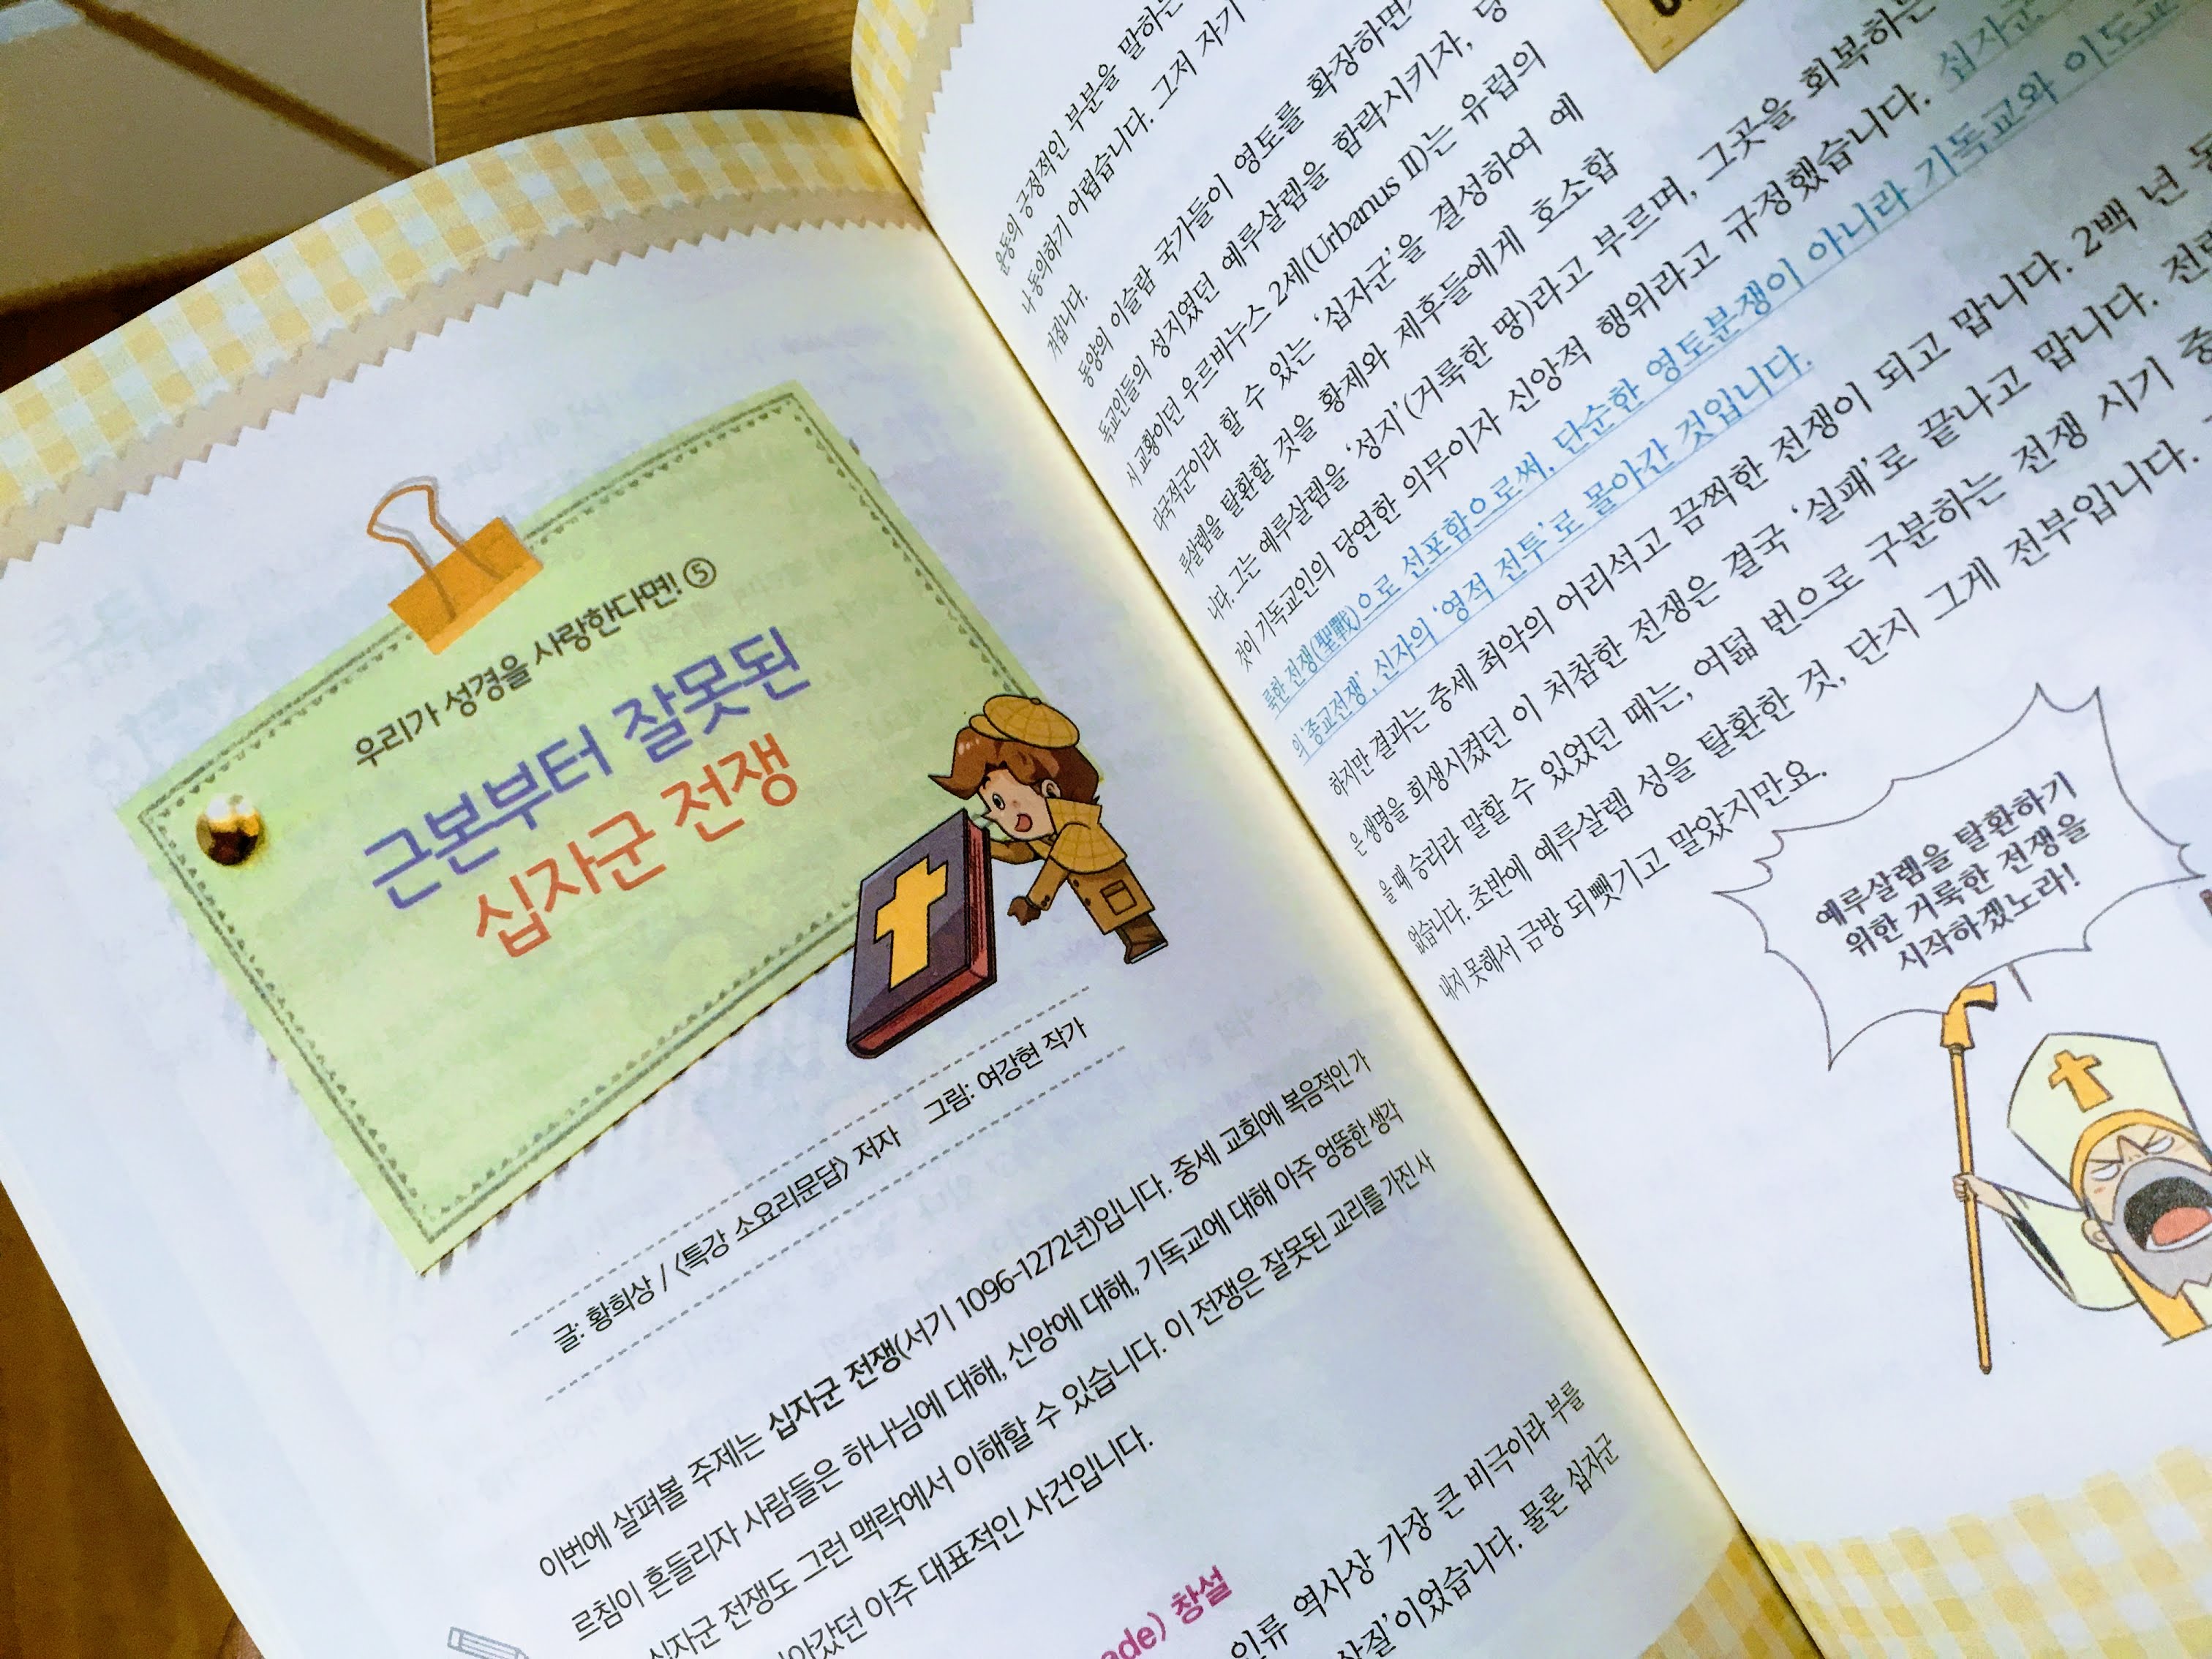 우리가 성경을 사랑한다면! ⑤
근본부터 잘못된
십자군 전쟁
글: 황희상 / 〈특강 소요리문답〉 저자 그림: 여강현 작가
이번에 살펴볼 주제는 십자군 전쟁(서기 1096-1272년)입니다. 중세 교회에 복음적인 가
르침이 흔들리자 사람들은 하나님에 대해, 신앙에 대해, 기독교에 대해 아주 엉뚱한 생각
십자군 전쟁도 그런 맥락에서 이해할 수 있습니다. 이 전쟁은 잘못된 교리를 가진 사
아갔던 아주 대표적인 사건입니다.
ade) 창설
인류 역사상 가장 큰 비극이라 부를
이었습니다. 물론 십자군
운동의 긍정적인 부분을 말하는
나 동의하기 어렵습니다. 그저 자기
커집니다.
동양의 이슬람 국가들이 영토를 확장하면
독교인들의 성지였던 예루살렘을 함락시키자, 당
시 교황이던 우르바누스 2세(Urbanus II)는 유럽의
다국적군이라 할 수 있는 ‘십자군’을 결성하여 예
루살렘을 탈환할 것을 황제와 제후들에게 호소합
니다. 그는 예루살렘을 ‘성지’(거룩한 땅)라고 부르며, 그곳을 회복하는
것이 기독교인의 당연한 의무이자 신앙적 행위라고 규정했습니다. 십자군
룩한 전쟁(聖戰)으로 선포함으로써, 단순한 영토분쟁이 아니라 기독교와 이도교
의 ‘종교전쟁’, 신자의 ‘영적 전투’로 몰아간 것입니다.
하지만 결과는 중세 최악의 어리석고 끔찍한 전쟁이 되고 맙니다. 2백 년
은 생명을 희생시켰던 이 처참한 전쟁은 결국 ‘실패’로 끝나고 맙니다.
을 때 승리라 말할 수 있었던 때는, 여덟 번으로 구분하는 전쟁 시기 중
없습니다. 초반에 예루살렘 성을 탈환한 것, 단지 그게 전부입니다.
내지 못해서 금방 되뺏기고 말았지만요.
예루살렘을 탈환하기
위한 거룩한 전쟁을
시작하겠노라!